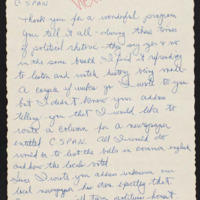 C SPAN
Thank you for a wonderful program
You tell it all - during these times
of political rhetoric - they say yes & no
in the same breath I find it refreshing
to listen and watch history being made
A couple of weeks ago I wrote to you
but I didn't know your address
telling you that I would like to
write a column for a newspaper
entitled C SPAN. All I would do
would be to list the bills in common english
and how the locals voted
Since I wrote you address unknown our
local newspaper has done exactly that